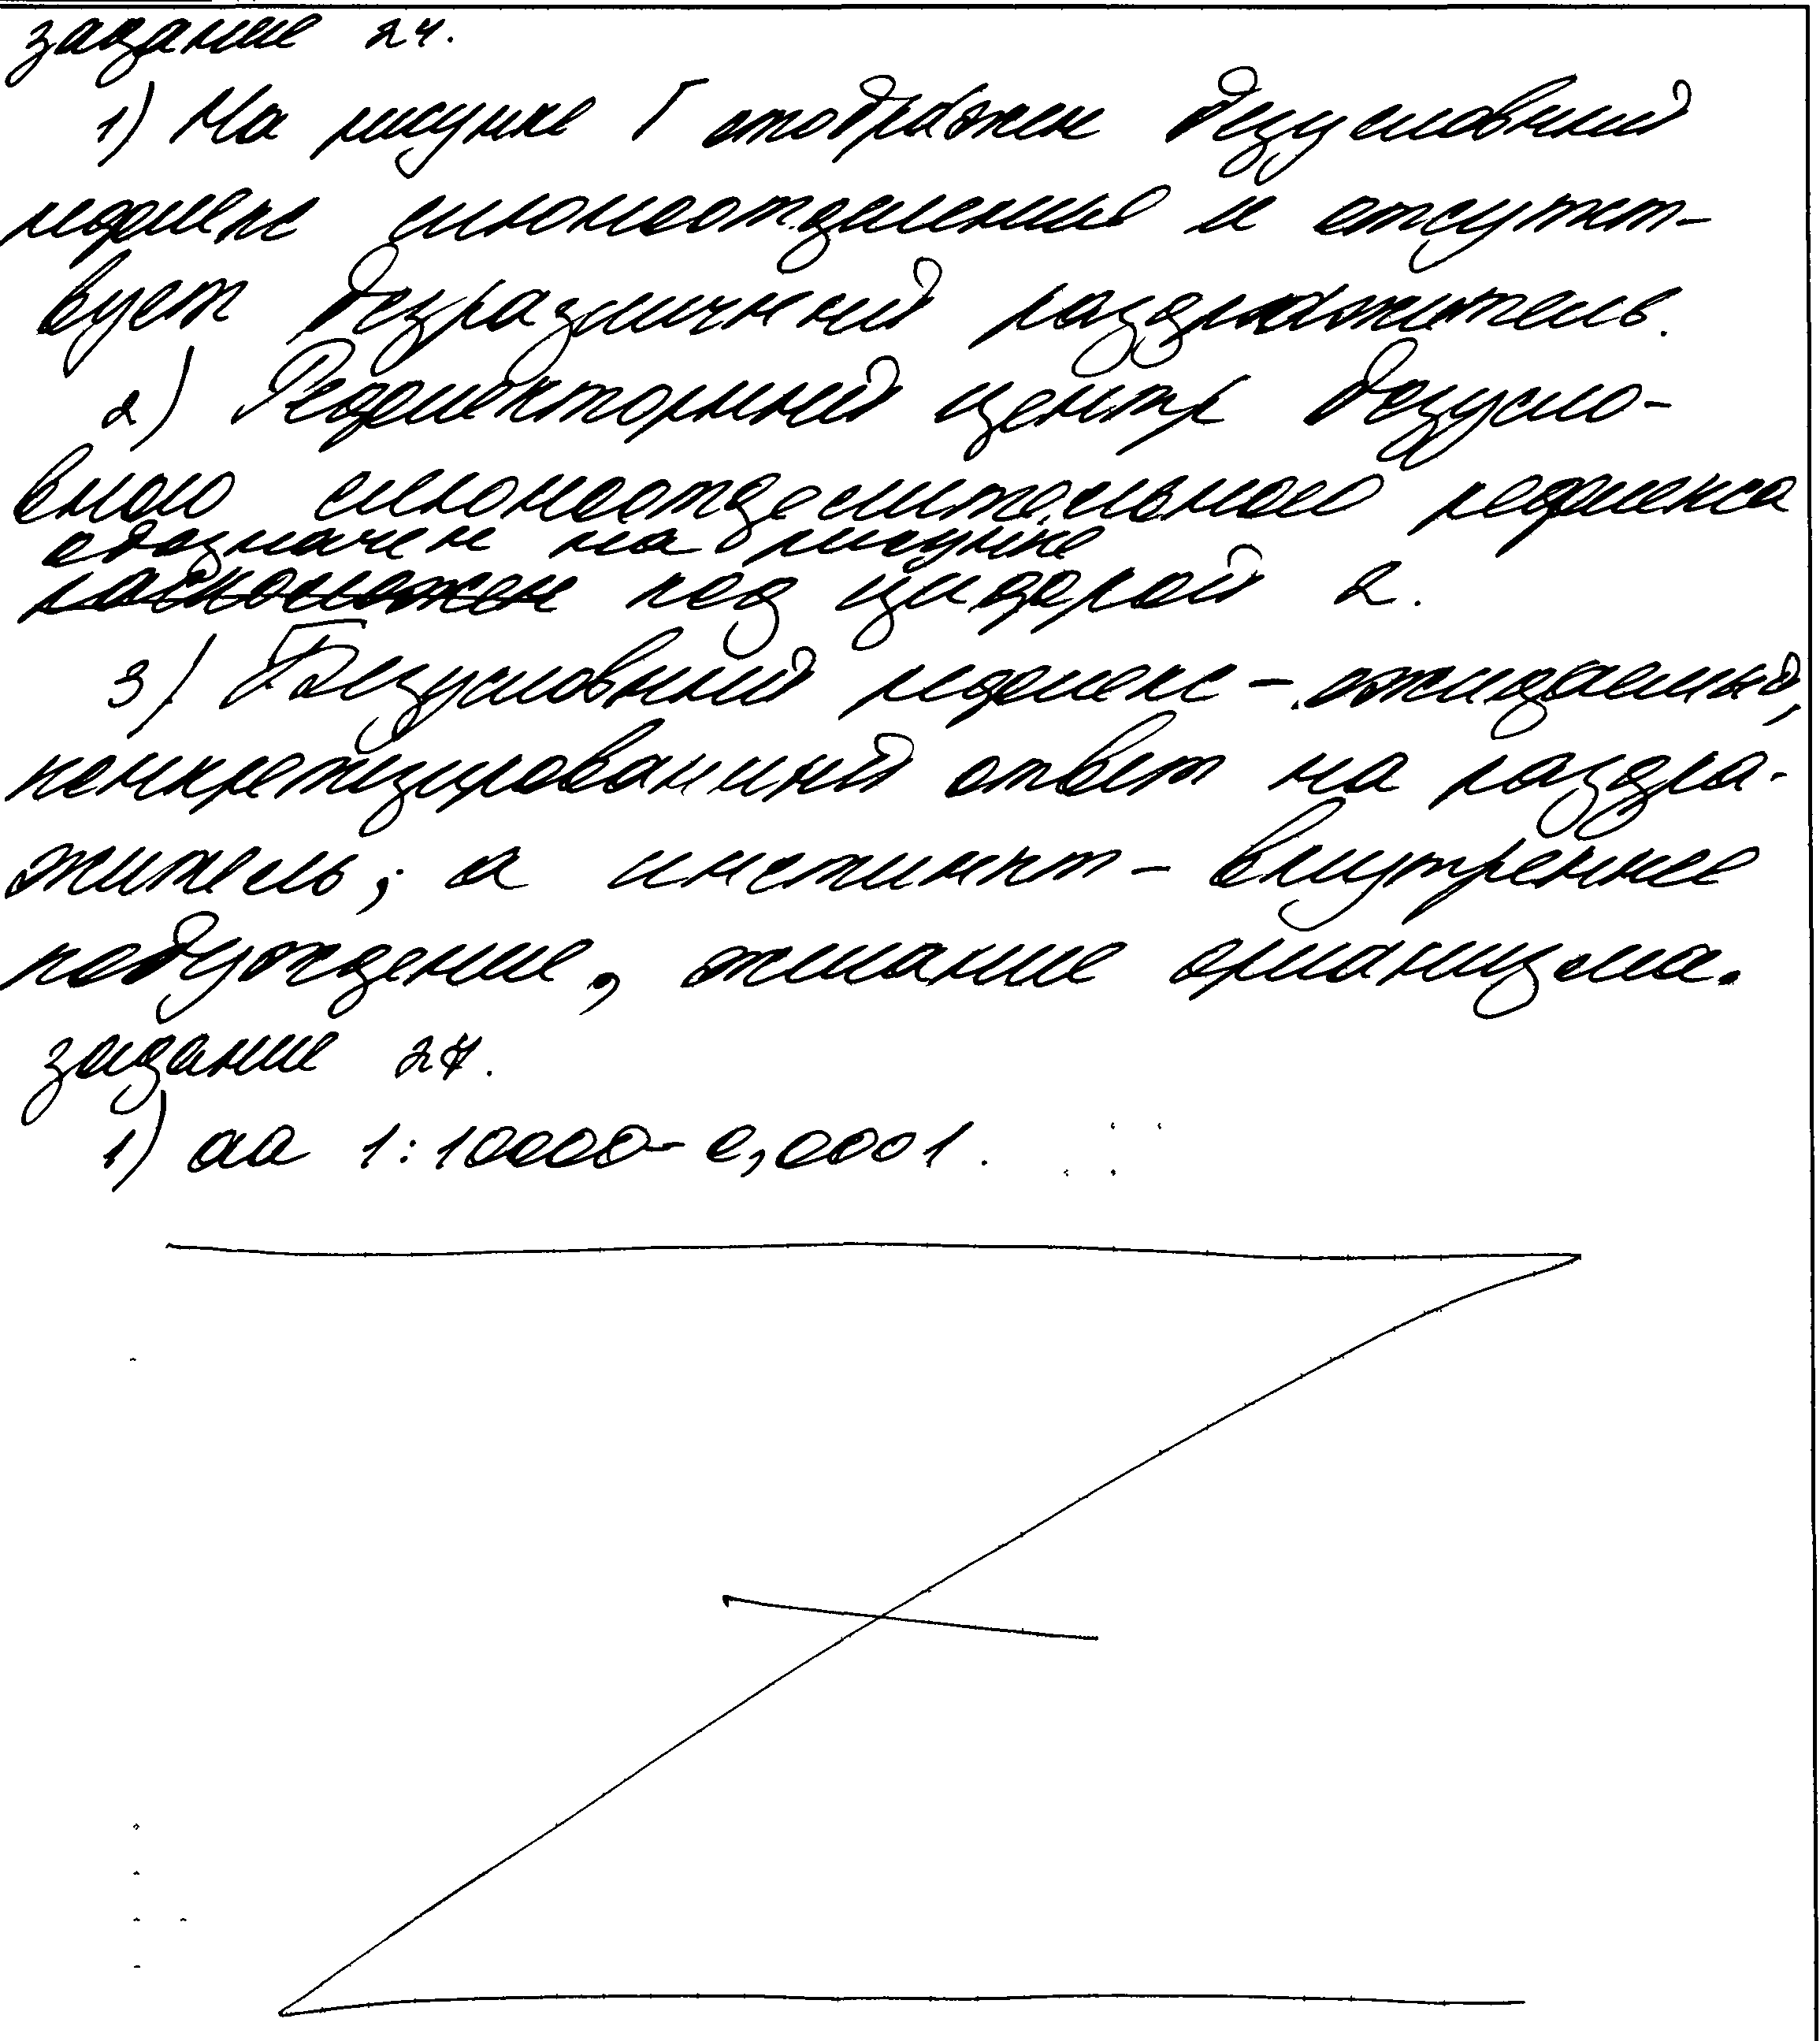 задание 24.
1) На рисунке Г отображен безусловный
рефлекс слюноотделения и отсутст-
вует безразличный раздражитель.
2) Рефлекторный центр безусло-
вного слюноотделительного рефлекса
обозначен на рисунке
расположен под цифрой 2.
3) Безусловный рефлекс - ожидаемый,
конкретизированный ответ на раздра-
житель; а инстинкт - внутреннее
побуждение, желание организма.
задание 27.
1) аа 1:10000 - 0,0001.